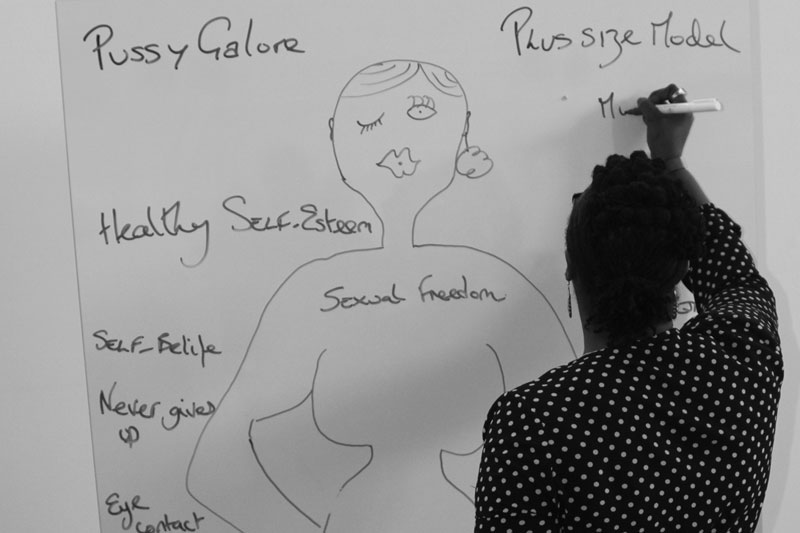 Pussy Galore
Plus size Model
Mu
Healthy Self-Esteem
Sexual Freedom
Self-Belife
Never gives
up
Eye
contact